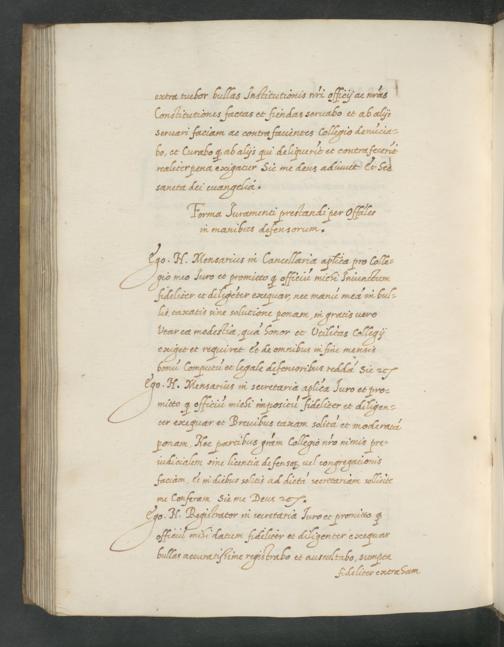 extra tuebor bullas Institutionis nr̃i officij ac nr̃as
Constitutiones factas et fiendas seruabo et ab alijs
seruari faciam ac contra facientes Collegio denũcia-
bo, et Curabo q̃ ab alijs qui deliquerit et contrafecerit
realiter pena exigatur Sic me deus adiuuet et
sancta dei euangelia.
Forma Iuramenti prestandi per Offãles
in manibus defensorum.
Ego. N. Mensarius in Cancellaria aplĩca pro Colle-
gio meo Iuro et promitto q̃ officiũ michi Iniunctum
fideliter et diligẽter exequar, nec manũ meã in bul-
lis taxatis sine solutione ponam, in gratis uero
Vtar ea modestia, quã honor et Vtilitas Collegij
exiget et requiret Et de omnibus in fine mensis
bonũ Computũ et legale defensoribus reddã Sic
Ego. N. Mensarius in secretaria aplĩca Iuro et pro-
mitto q̃ officiũ michi impositũ fideliter et diligen-
ter exequar et Breuibus taxam solitã et moderatã
ponam. Nec partibus grãm Collegio nr̃o nimis pre-
iudicialem sine licentia defensoꝝ uel congregationis
faciam. Et in diebus solitis ad dictã secretariam sollicite
me Conferam Sic me Deus
Ego. N. Registrator in secretaria Iuro et promitto q̃
officiũ mihi datum fideliter et diligenter exequar
bullas accuratissime registrabo et auscultabo, sumpta
fideliter extraham